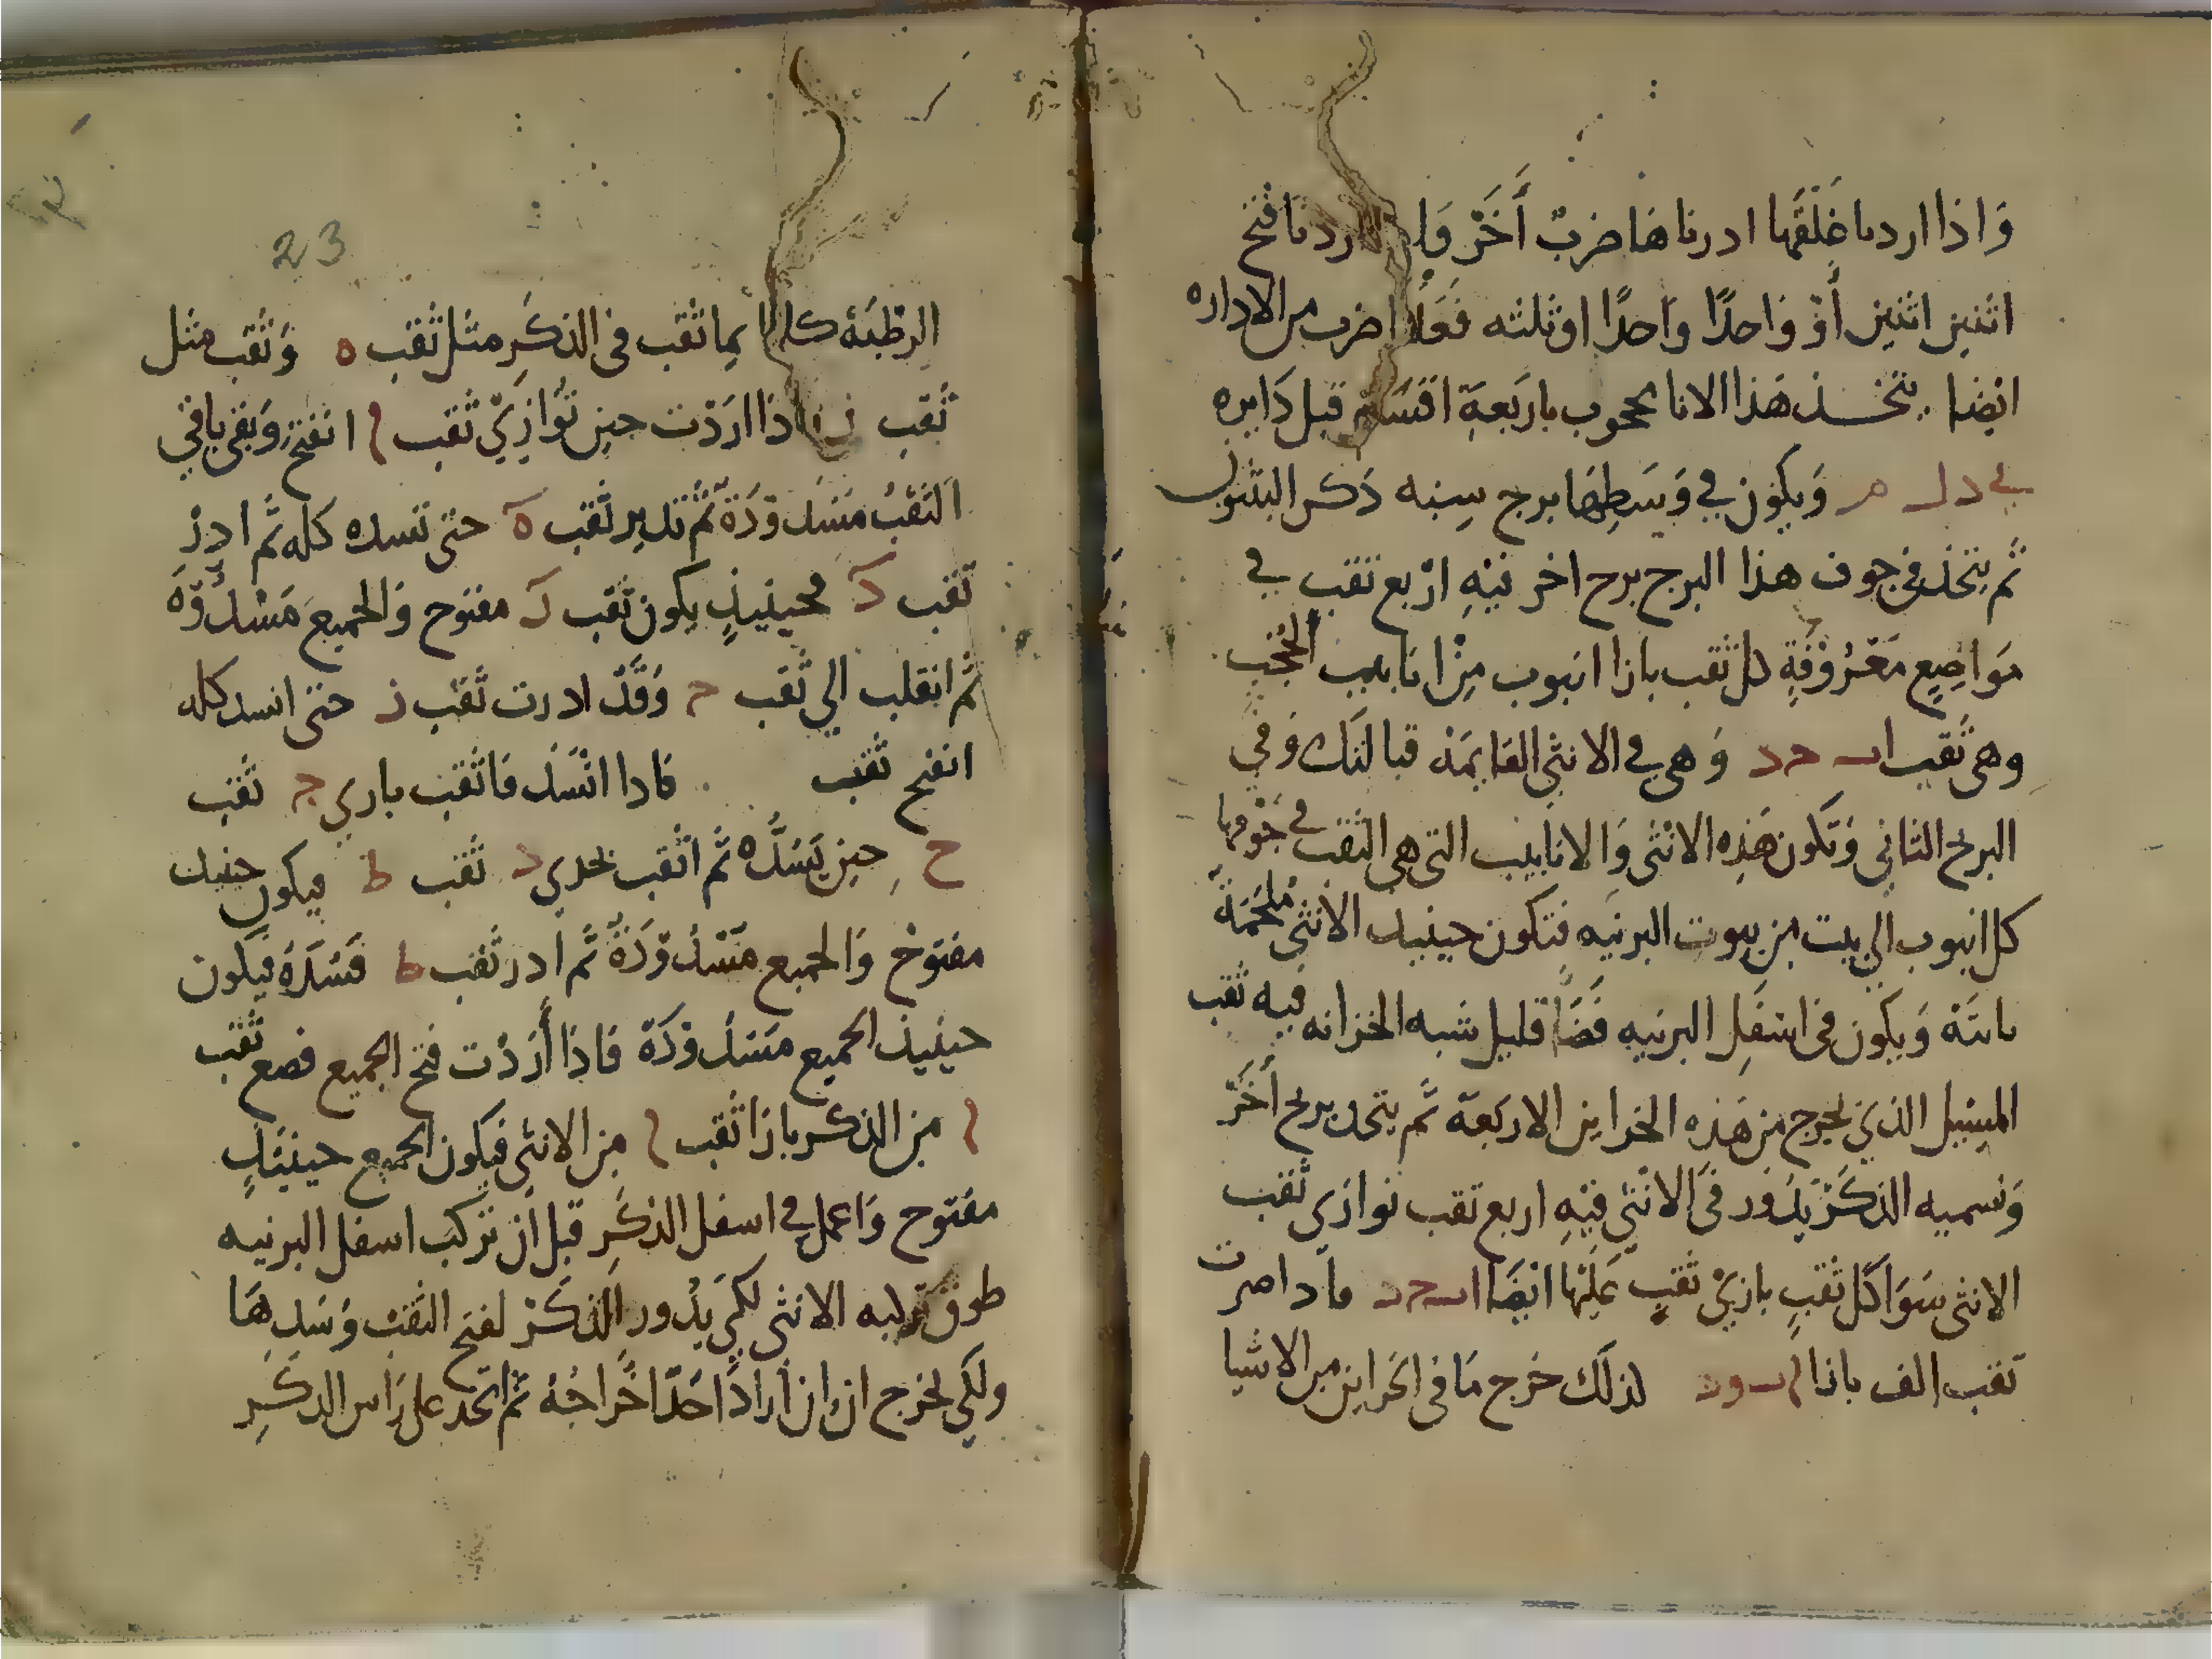 وَاذا اردنا غَلَقَها ادرناها ضربٌ أَخَرْ وَا اردنا فتح
اثنين اثنين أوْ وَاحدًا وَاحدًا اوثلثه فَعَلَا ضرب من الاداره
ايضا يتخذ هَذا الانا محجوب باربَعةِ اقسَام قبل دَايره
ويكون في وَسَطِهَا برج سبنه ذكر البثيون
ثم يتخذ في جوف هذا البرج برج اخر فيهِ ارْبع ثقب في
مَواضِع مَعْرُوْفَةٍ كل ثقب بازا انبوب مِنْ انابيب الحجب
وهي ثقب ا ب ح د وَهي في الانثى القايمَة قبالتك وَفي
البرنج الثاني وَتكون هَذِه الانثى وَالانابيب التي هي الثقب في جَوفها
كل انبوب الى بيت من بيوت البرنيه فتكون حينيد الانثى مُلحَمَةً
ثابتَة وَيكون في اسْفَلِ البرنيه فَضَاً قليل شبه الخزانه فيه ثقب
المبثيل الذي يخرج من هَذِه الخزاين الاربَعة ثم يتخد برنج أَخَرْ
وَنسميه الذكَرْ يَدُور في الانثي فيْهِ اربع ثقب توازي ثقب
الانثى سَوَا كل ثقبٍ بازيْ ثقبٍ عَلَيْها ايْضَا ا ب ح د فاداصرت
ثقب الف بازا ا ب و د لذلَك خرج مَا في الخزاين من الاشيا
23
الرطبَة كلها بما ثقب في الذكَرِ مثل ثقب ه وَثُقب مثل
ثقب ز اذا ارَدْت حين تُوَازِيْ ثقب ا انفتح وَبَقى باقي
الثقبُ مَسْدودَة ثم تدير ثقب ه حتى تسده كله ثم ادرْ
ثقب د فحينيذٍ يكون ثقب د مفتوح وَالجميع مَسْدُوْدَه
ثم انقلب الي ثقب ح وَقَدْ ادرت ثقب ز حتى انسد كله
انفتح ثقب فادا انْسَد فاثقب باري ج ثقب
ح حين يَسُدَّه ثم اثقب بحدي د ثقب ط فيكون حنيد
مفتوحْ وَالجميع مَسْدُوْدَةٌ ثم ادر ثقب ط فَسَدَهُ فيكون
حينيذ الجميع مَسْدُوْدَة فاذا أَرَدْت فتح الجميع فصع ثقب
ا من الذكر بازا ثقب ا من الانثي فيكون الجميع حينيَذٍ
مفتوح وَاعمل في اسفل الذكَرِ قبل ان تركبَ اسفل البرنيه
طوق تركبه الانثي لكي يَدُور الذكَرْ لفتح الثقبْ وَسَدهَا
ولكي يخرج ان اراد احَدًا اخراجُهُ ثم اتخد على رَاس الدكَرِ